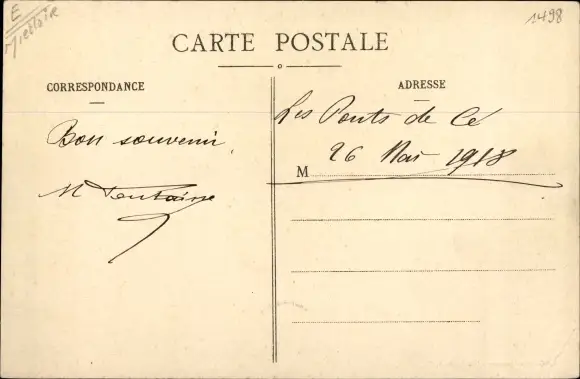 E
1498
CARTE POSTALE
CORRESPONDANCE
ADRESSE
Bon souvenir,
M Fontaine
Les Ponts de Cé
26 Mai 1918
M